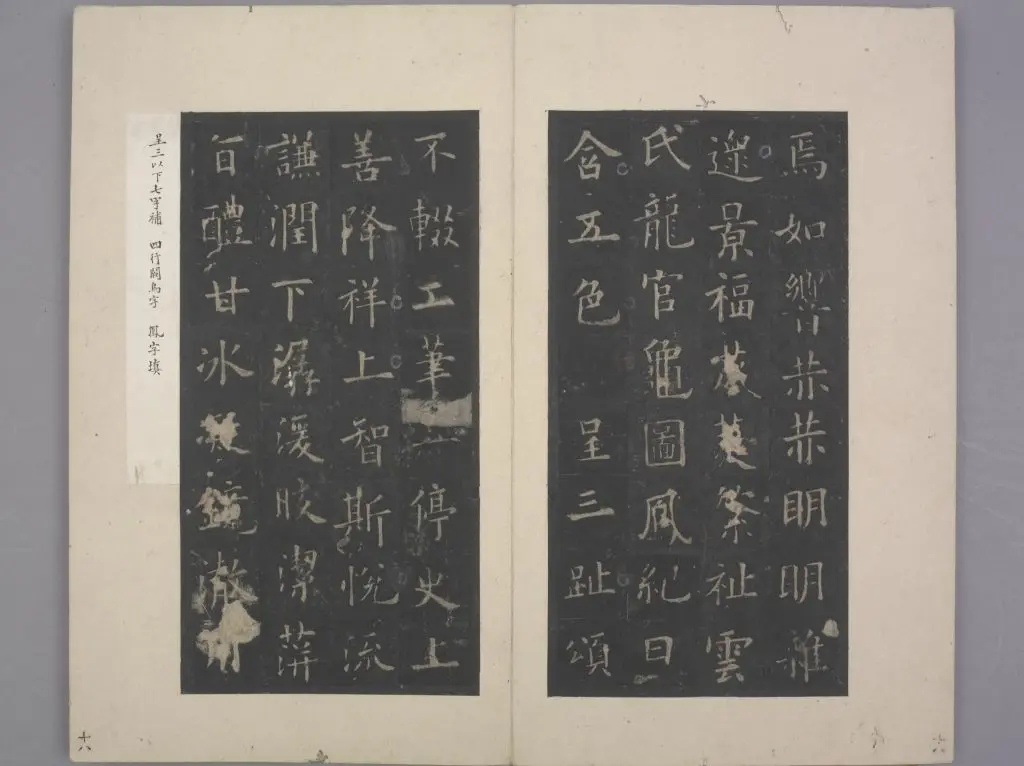 焉如響赫赫明明雜
遝景福葳蕤繁祉雲
氏龍官龜圖鳳紀日
含五色 呈三趾頌
不輟工筆 停史上
善降祥上智斯悅流
謙潤下潺湲皎潔蓱
旨醴甘冰凝鏡澈用
呈三以下七字補 四行闕烏字 鳳字填
十八